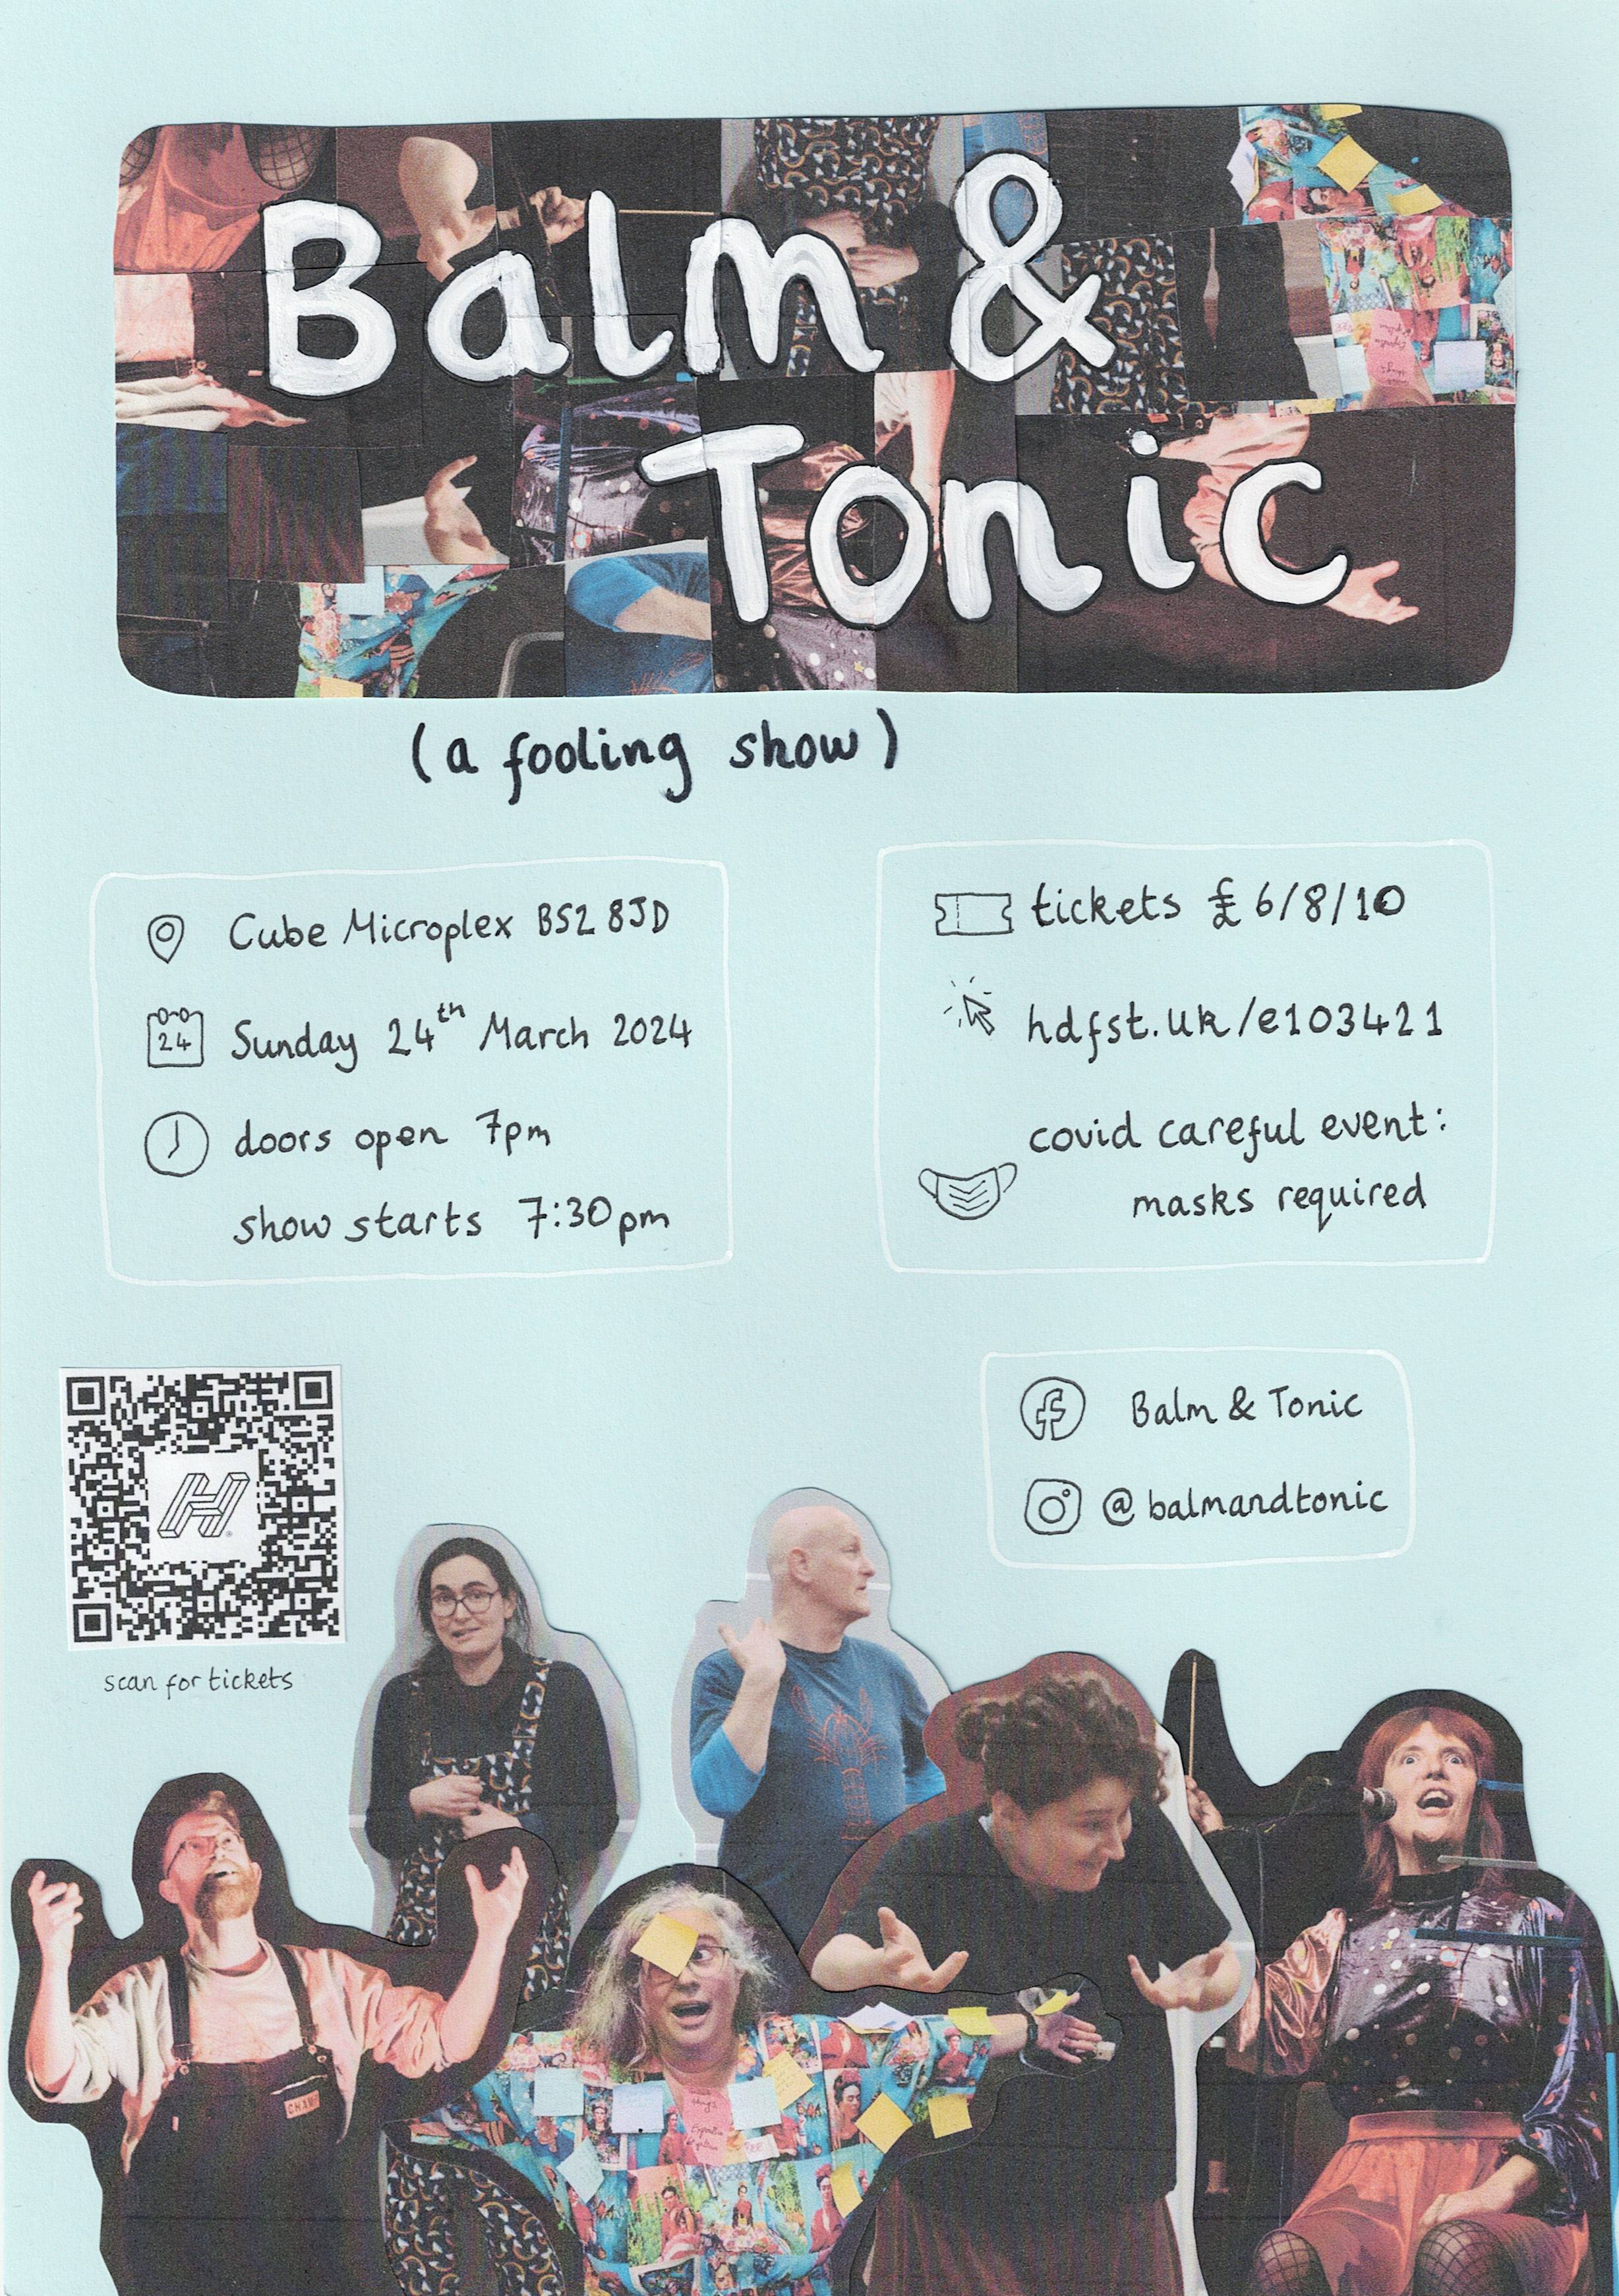 Balm &
Tonic
(a fooling show)
Cube Microplex BS2 8JD
24
Sunday 24th March 2024
doors open 7pm
show starts 7:30pm
tickets £6/8/10
hdfst.uk/e103421
covid careful event:
masks required
H
scan for tickets
Balm & Tonic
@balmandtonic